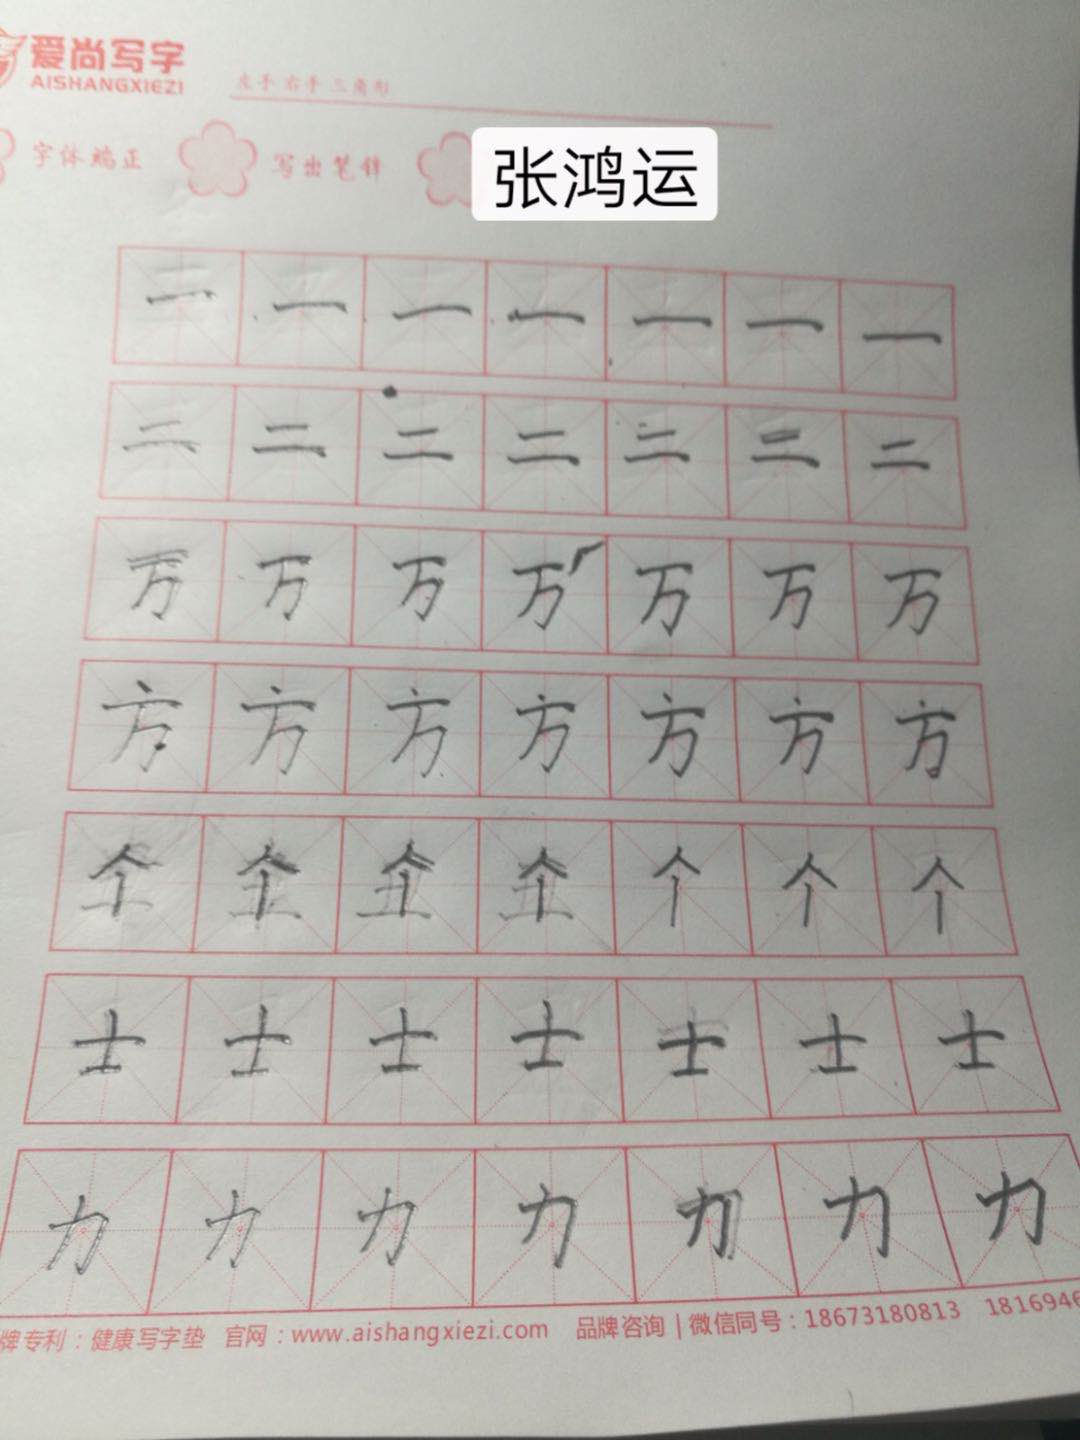 爱尚写字
AISHANGXIEZI
左手右手三角形
字体端正 写出笔锋
张鸿运
一 一 一 一 一 一 一
二 二 二 二 二 二 二
万 万 万 万 万 万 万
方 方 方 方 方 方 方
个 个 个 个 个 个 个
士 士 士 士 士 士 士
力 力 力 力 力 力 力
牌专利：健康写字垫 官网：www.aishangxiezi.com 品牌咨询|微信同号：18673180813 1816946